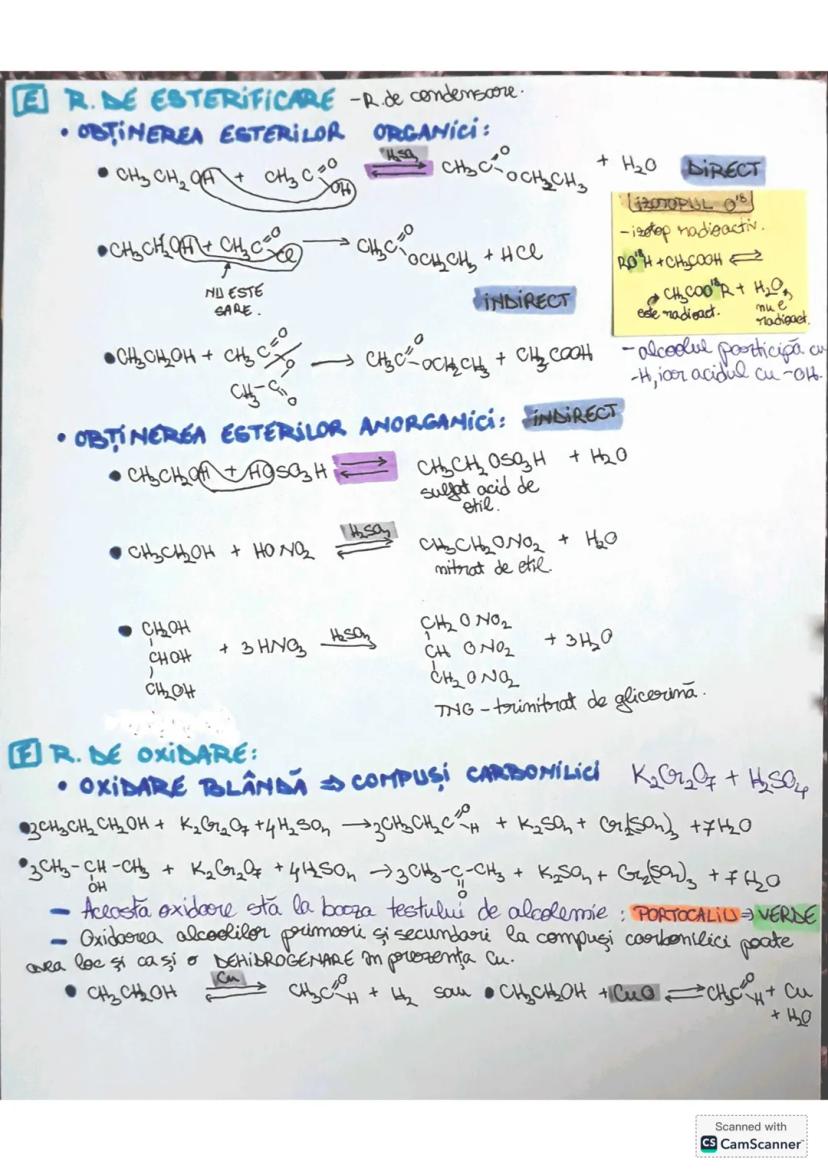 E R. DE ESTERIFICARE - R. de condensare.
• OBȚINEREA ESTERILOR ORGANICI:
• CH₃CH₂OH + CH₃C=O OH ⇌ H₂SO₄ CH₃C=O OCH₂CH₃ + H₂O DIRECT
IZOTOPUL O¹⁸
- izotop radioactiv.
RO¹⁸H + CH₃COOH ⇌
CH₃COO¹⁸R + H₂O
este radioact. nu e
radioact.
• CH₃CH₂OH + CH₃C=O Cl → CH₃C=O OCH₂CH₃ + HCl
NU ESTE
SARE.
INDIRECT
• CH₃CH₂OH + CH₃C=O O → CH₃C=O OCH₂CH₃ + CH₃COOH
CH₃-C=O
- alcoolul participă cu
-H, iar acidul cu -OH.
• OBȚINEREA ESTERILOR ANORGANICI: INDIRECT
• CH₃CH₂OH + HOSO₃H ⇌ CH₃CH₂OSO₃H + H₂O
sulfat acid de
etil.
• CH₃CH₂OH + HONO₂ ⇌ H₂SO₄ CH₃CH₂ONO₂ + H₂O
nitrat de etil.
• CH₂OH CH₂ONO₂
CHOH + 3HNO₃ H₂SO₄ → CHONO₂ + 3H₂O
CH₂OH CH₂ONO₂
TNG - trinitrat de glicerină.
F R. DE OXIDARE:
• OXIDARE BLÂNDĂ ⇒ COMPUȘI CARBONILICI K₂Cr₂O₇ + H₂SO₄
• 3CH₃CH₂CH₂OH + K₂Cr₂O₇ + 4H₂SO₄ → 3CH₃CH₂C=O H + K₂SO₄ + Cr₂(SO₄)₃ + 7H₂O
• 3CH₃-CH-CH₃ + K₂Cr₂O₇ + 4H₂SO₄ → 3CH₃-C-CH₃ + K₂SO₄ + Cr₂(SO₄)₃ + 7H₂O
OH O
- Aceosta oxidare stă la baza testului de alcolemie: PORTOCALIU ⇒ VERDE
- Oxidarea alcoolilor primari și secundari la compuși carbonilici poate
avea loc și ca și o DEHIDROGENARE în prezența Cu.
• CH₃CH₂OH ⇌ Cu CH₃C=O H + H₂ sau • CH₃CH₂OH + CuO ⇌ CH₃C=O H + Cu
+ H₂O
Scanned with
CS CamScanner